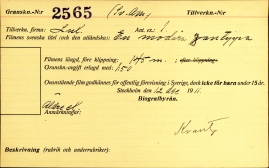 Granskn.-Nr: 2565 Tillverkn.-Nr:
Tillverkn. firma:
Filmens svenska titel (och den utländska): En modern Xantippa
Filmens längd, före klippning: 145 m. efter klippning:
Granskn.-avgift erlagd med: 1:50
Ovanstående film godkännes för offentlig förevisning i Sverige, dock icke för barn under 15 år.
Stockholm den 12 dec. 1911.
Biografbyrån.
Anmärkningar:
Beskrivning (rubrik och underrubriker):